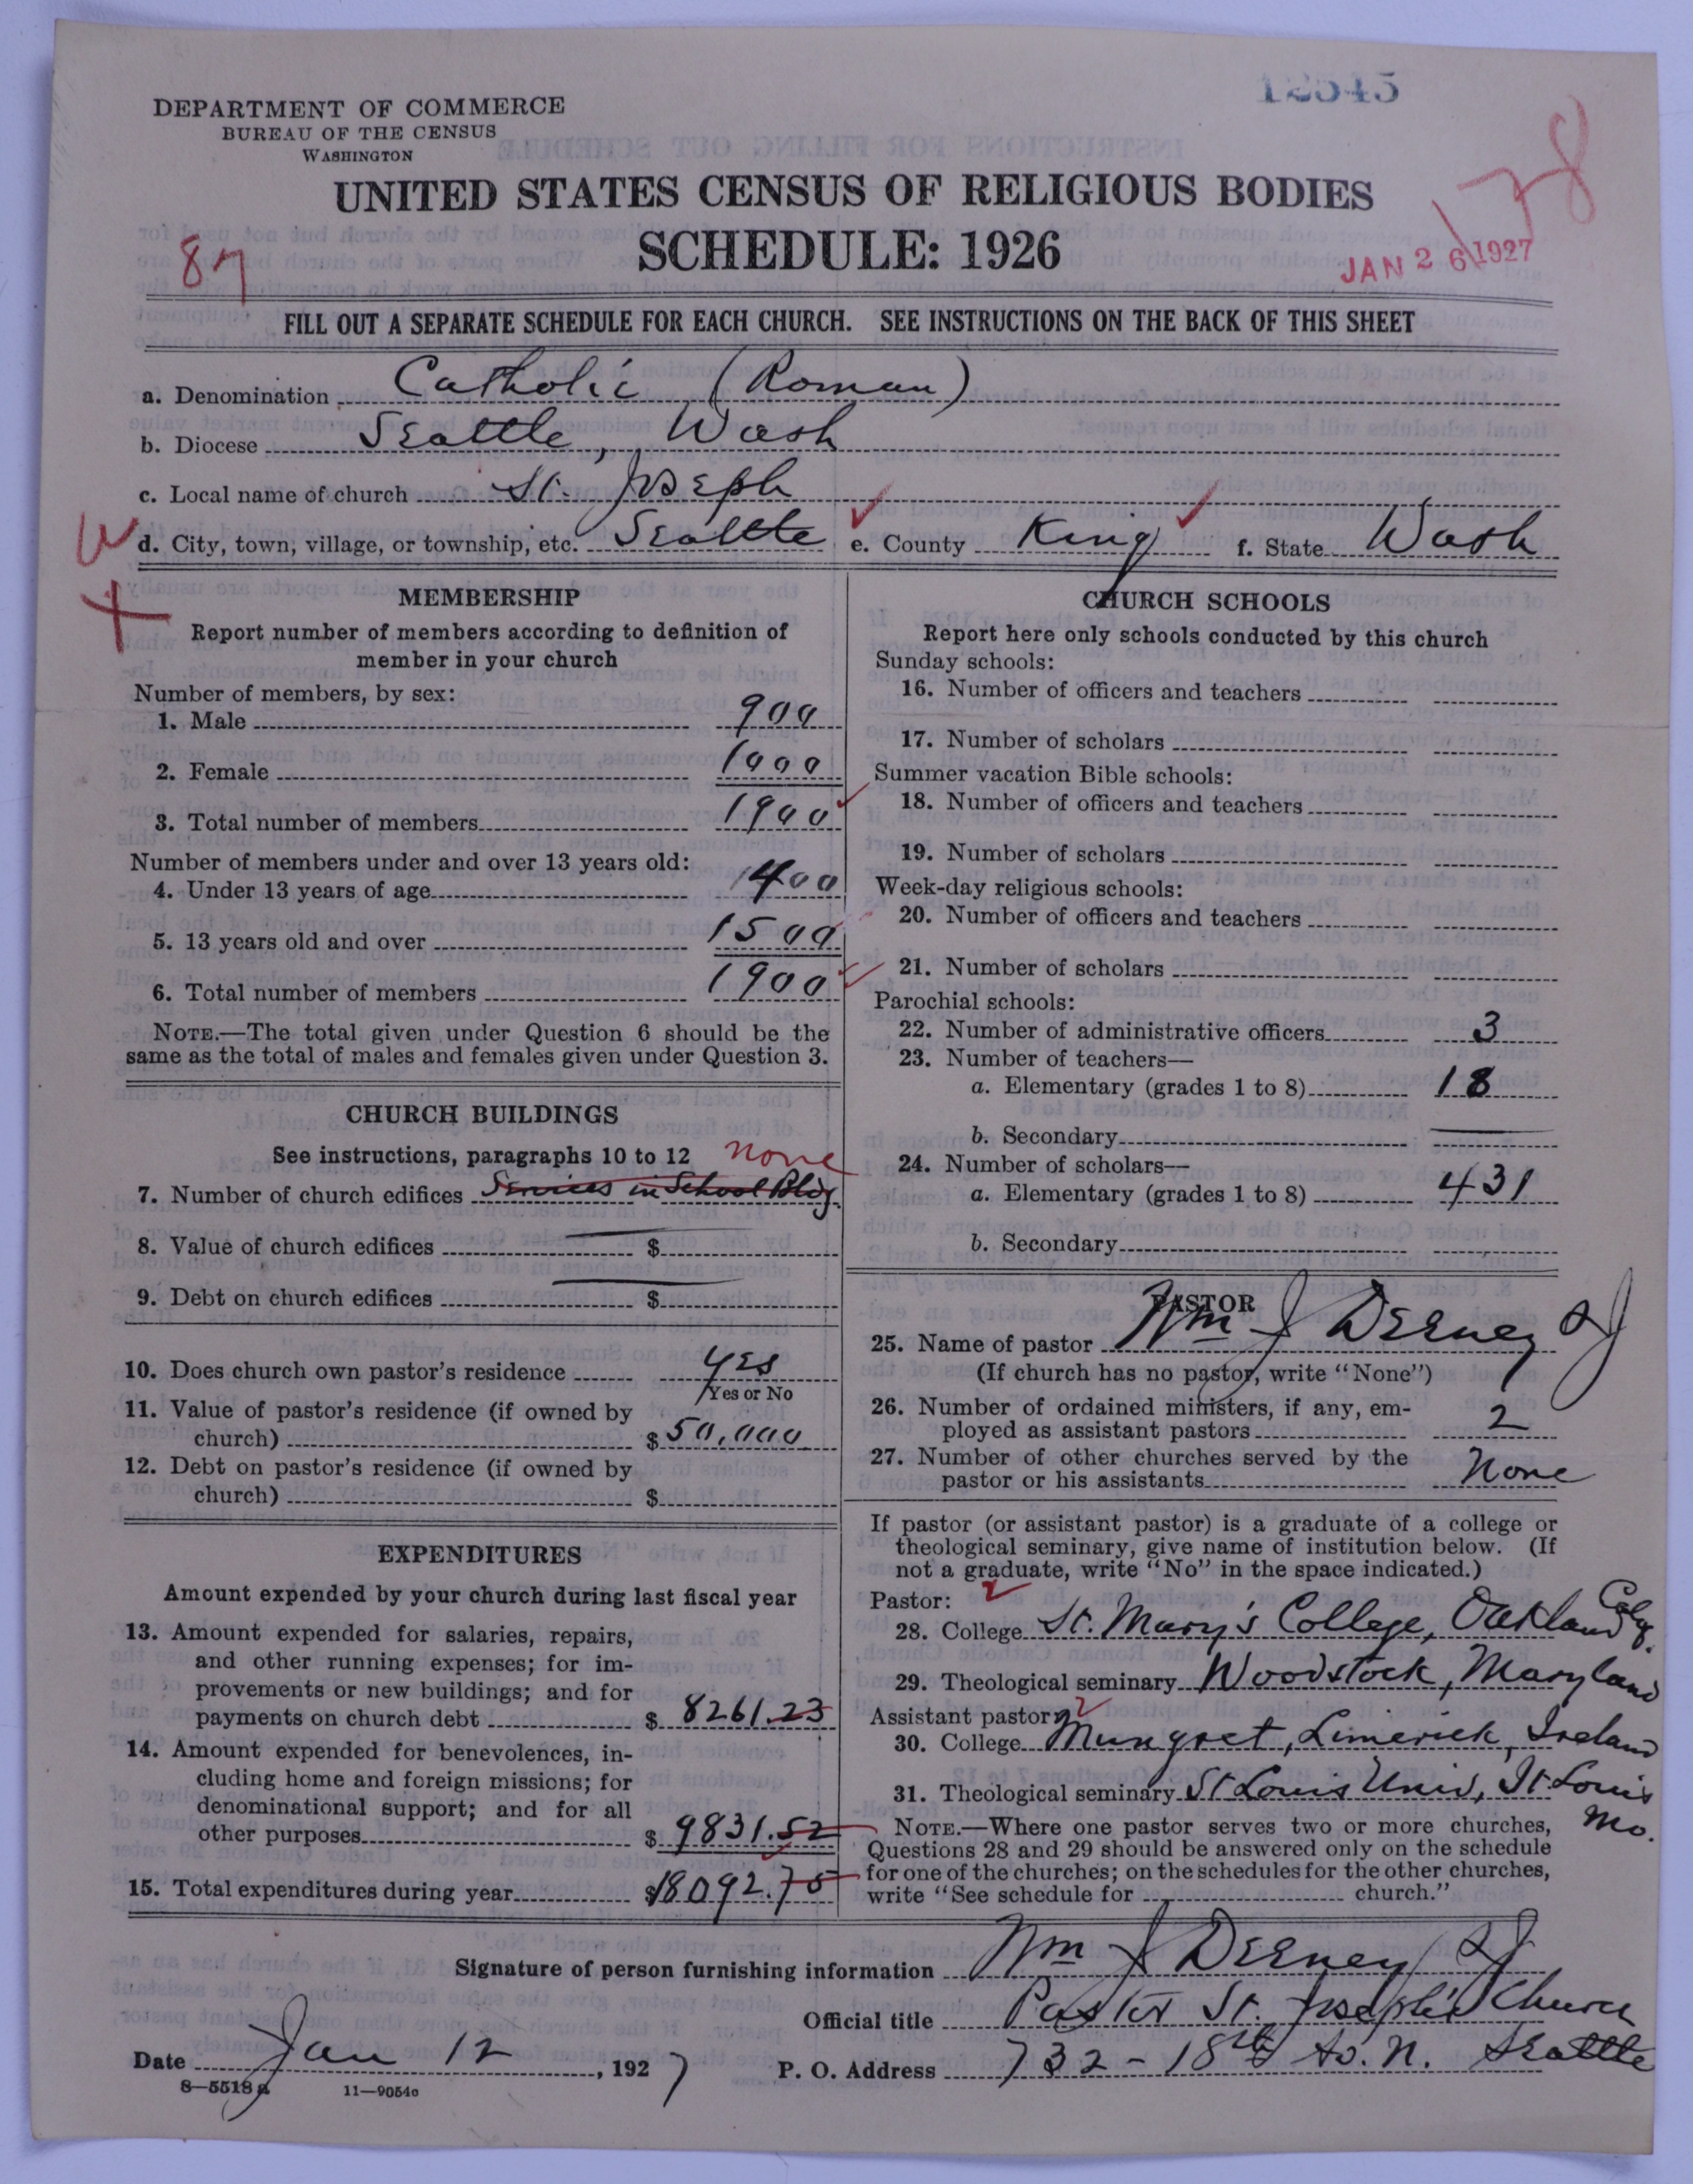 12545
DEPARTMENT OF COMMERCE
BUREAU OF THE CENSUS
WASHINGTON
UNITED STATES CENSUS OF RELIGIOUS BODIES
SCHEDULE: 1926
87
JAN 26 1927
FILL OUT A SEPARATE SCHEDULE FOR EACH CHURCH. SEE INSTRUCTIONS ON THE BACK OF THIS SHEET
a. Denomination Catholic (Roman)
b. Diocese Seattle, Wash
c. Local name of church St. Joseph
d. City, town, village, or township, etc. Seattle e. County King f. State Wash
MEMBERSHIP
Report number of members according to definition of
member in your church
Number of members, by sex:
1. Male 900
2. Female 1000
3. Total number of members 1900
Number of members under and over 13 years old:
4. Under 13 years of age 400
5. 13 years old and over 1500
6. Total number of members 1900
NOTE.—The total given under Question 6 should be the
same as the total of males and females given under Question 3.
CHURCH BUILDINGS
See instructions, paragraphs 10 to 12 none
7. Number of church edifices Services in School Bldg.
8. Value of church edifices $
9. Debt on church edifices $
10. Does church own pastor's residence yes
Yes or No
11. Value of pastor's residence (if owned by
church) $ 50,000
12. Debt on pastor's residence (if owned by
church) $
EXPENDITURES
Amount expended by your church during last fiscal year
13. Amount expended for salaries, repairs,
and other running expenses; for im-
provements or new buildings; and for
payments on church debt $ 8261.23
14. Amount expended for benevolences, in-
cluding home and foreign missions; for
denominational support; and for all
other purposes $ 9831.52
15. Total expenditures during year $18092.75
CHURCH SCHOOLS
Report here only schools conducted by this church
Sunday schools:
16. Number of officers and teachers
17. Number of scholars
Summer vacation Bible schools:
18. Number of officers and teachers
19. Number of scholars
Week-day religious schools:
20. Number of officers and teachers
21. Number of scholars
Parochial schools:
22. Number of administrative officers 3
23. Number of teachers—
a. Elementary (grades 1 to 8) 18
b. Secondary
24. Number of scholars—
a. Elementary (grades 1 to 8) 431
b. Secondary
PASTOR
25. Name of pastor Wm J Deeney SJ
(If church has no pastor, write "None")
26. Number of ordained ministers, if any, em-
ployed as assistant pastors 2
27. Number of other churches served by the
pastor or his assistants None
If pastor (or assistant pastor) is a graduate of a college or
theological seminary, give name of institution below. (If
not a graduate, write "No" in the space indicated.)
Pastor:
28. College St. Mary's College, Oakland Calif.
29. Theological seminary Woodstock, Maryland
Assistant pastor:
30. College Mungret, Limerick, Ireland
31. Theological seminary St Louis Univ, St Louis Mo.
NOTE.—Where one pastor serves two or more churches,
Questions 28 and 29 should be answered only on the schedule
for one of the churches; on the schedules for the other churches,
write "See schedule for church."
Signature of person furnishing information Wm J Deeney SJ
Official title Pastor St. Joseph's Church
Date Jan 12, 1927 P. O. Address 732 - 18th Av. N. Seattle
8—5518 a 11—9054o